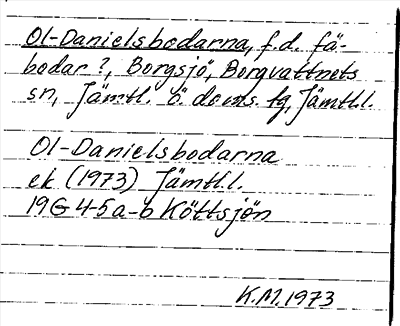 Ol-Danielsbodarna, f.d. fä-
bodar?, Borgsjö, Borgvattnets
sn, Jämtl. ö doms. fg, Jämtl.l.
Ol-Danielsbodarna
ek (1973) Jämtl.l.
19G 4-5 a-b Köttsjön
K.M. 1973